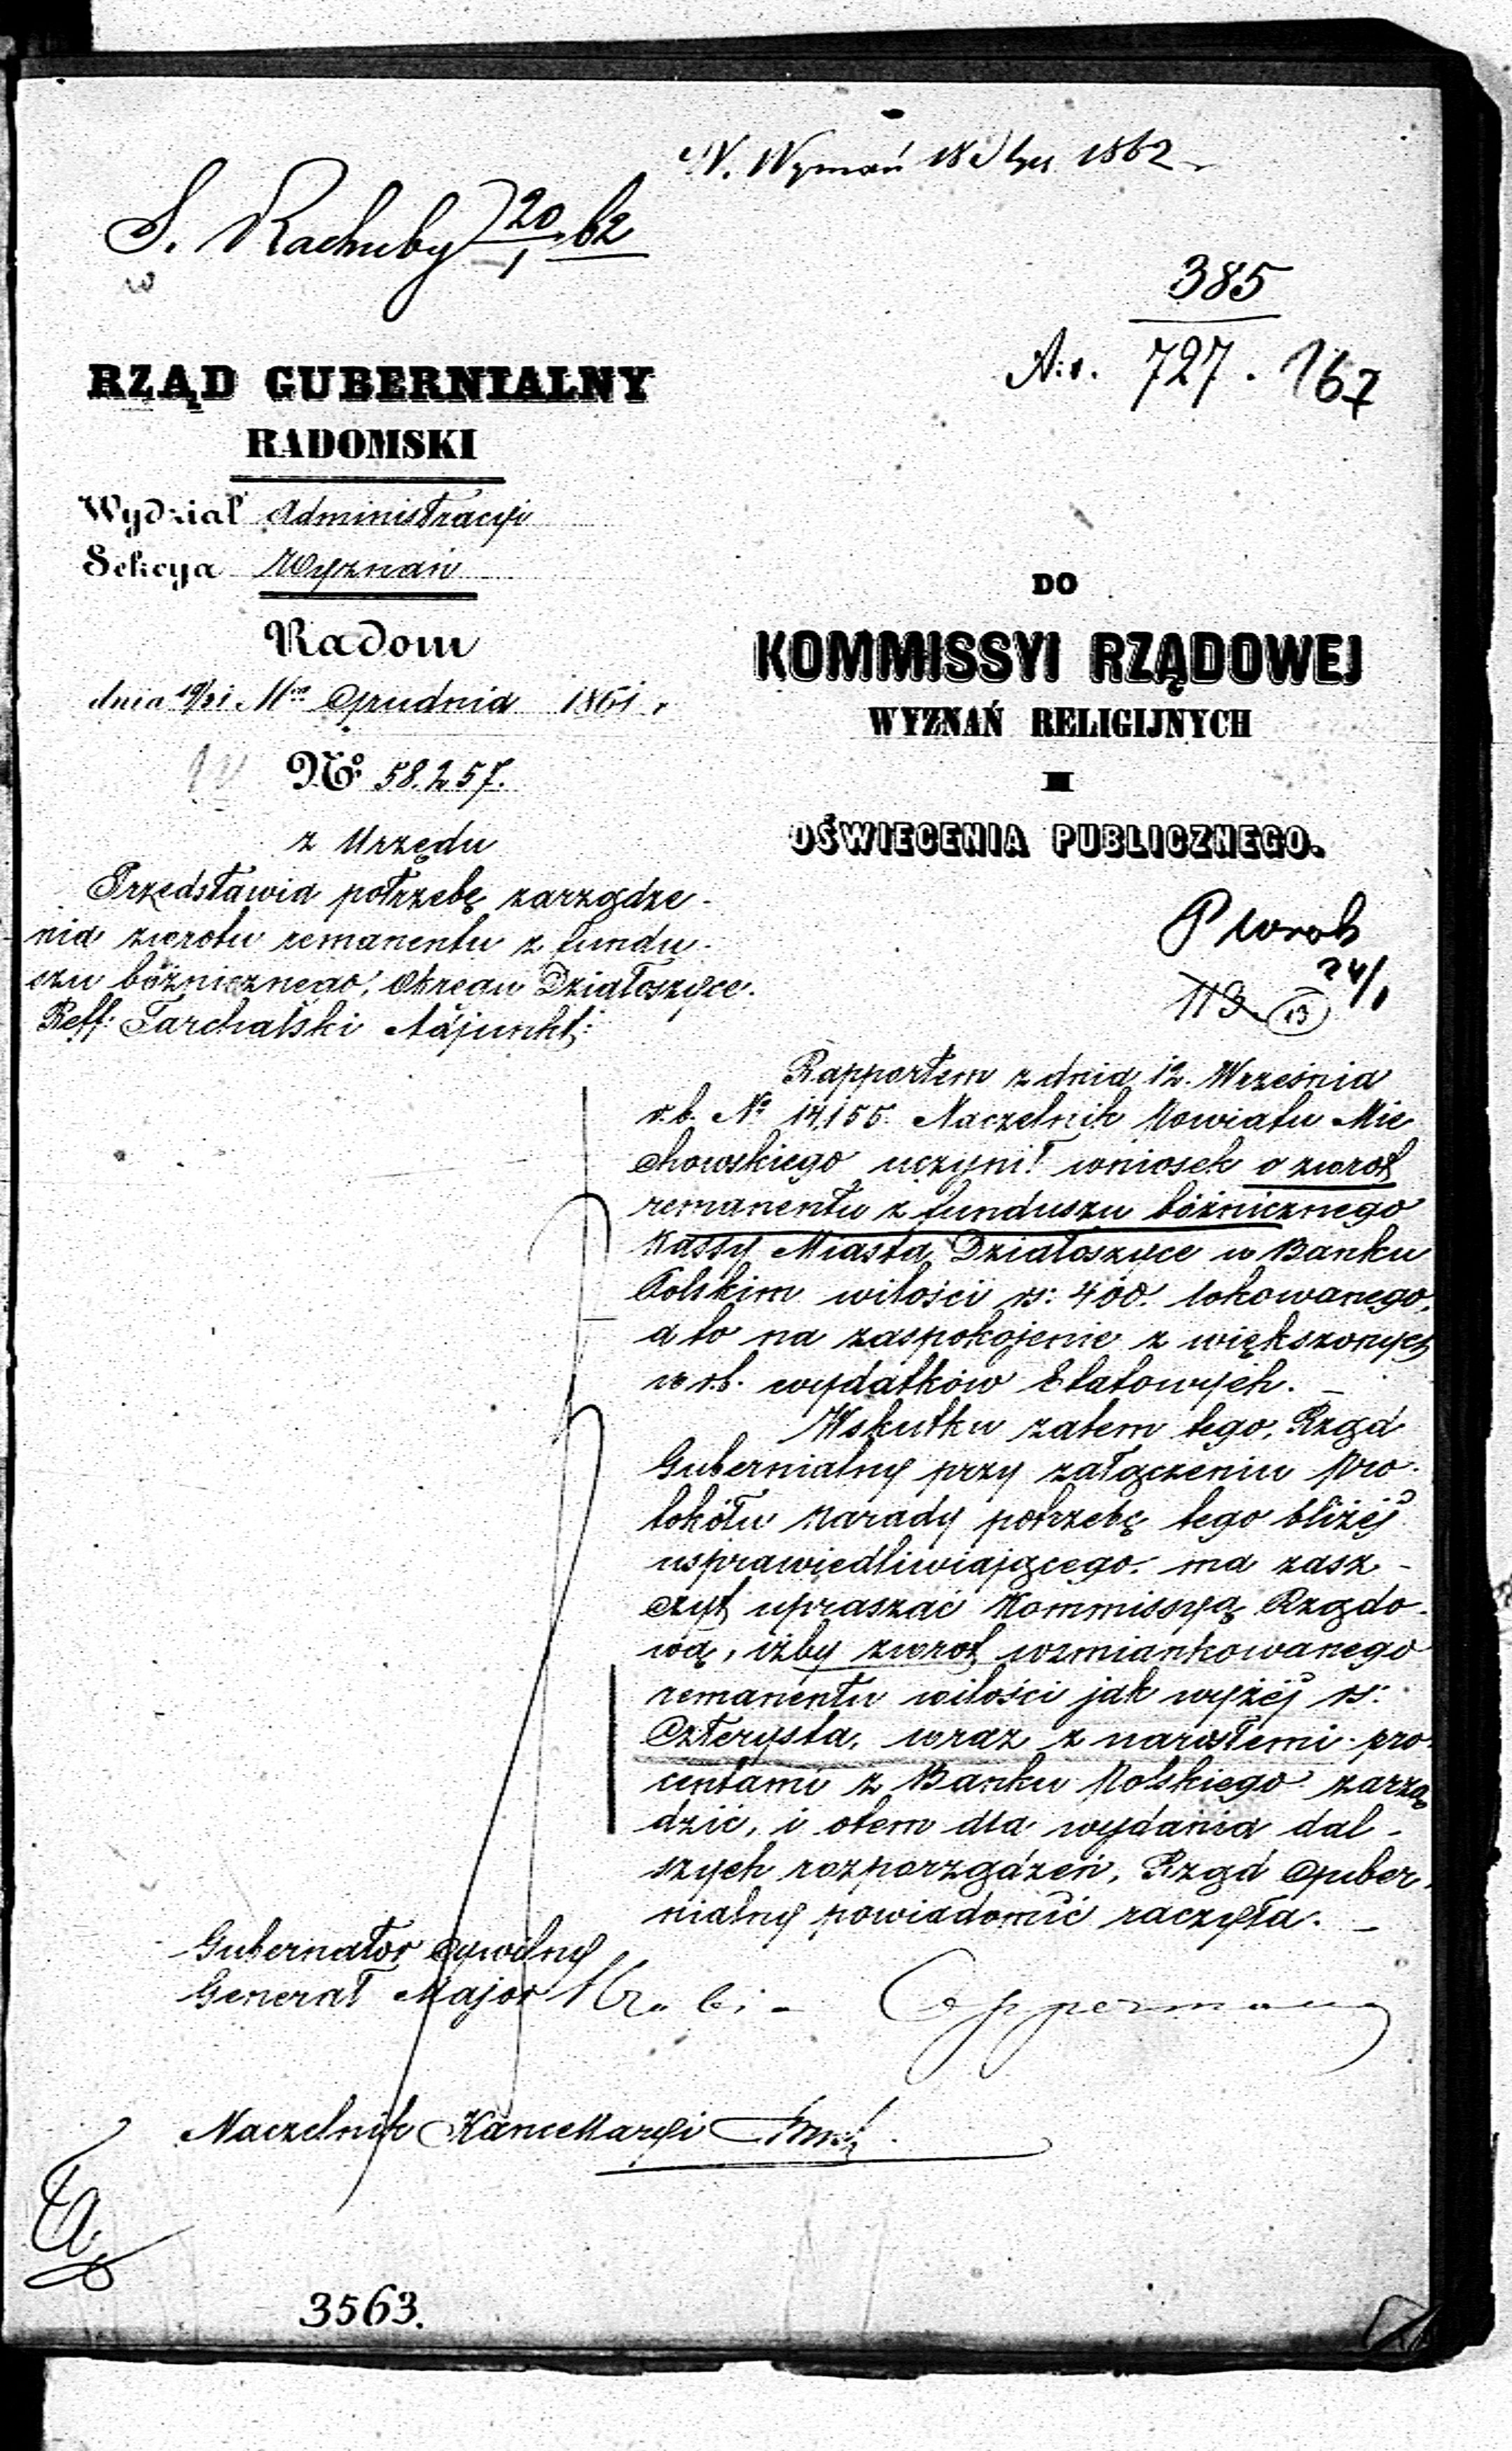 W. Wyznań 18 1862
S. Rachuby 20/1 62
385
727 . 167
RZĄD GUBERNIALNY
RADOMSKI
Wydział Administracyi
Sekcya Wyznań
Radom
dnia 19/31 Mca Grudnia 1861 r
No 58.257.
z Urzędu
Przedstawia potrzebę zarządze-
nia zwrotu remanentu z fundu-
szu bóżnicznego, Okręgu Działoszyce.
Reff: Tarchalski Adjunkt:
DO
KOMMISSYI RZĄDOWEJ
WYZNAŃ RELIGIJNYCH
I
OŚWIECENIA PUBLICZNEGO.
P
24/1
113 13
Rapportem z dnia 12. Września
r.b. No 14,155. Naczelnik Powiatu Mie
chowskiego uczynił wniosek o zwrot
remanentu z funduszu bóżnicznego
Kassy Miasta Działoszyce w Banku
Polskim wilości rs: 400. lokowanego,
a to na zaspokojenie z większonych
w r.b. wydatków Etatowych. –
Wskutku zatem tego, Rząd
Gubernialny przy załączeniu Pro-
tokółu Narady potrzebę tego bliżéj
usprawiedliwiającego. ma zasz-
czyt upraszać Kommissyą Rządo-
wą, iżby zwrot wzmiankowanego
remanentu wilości jak wyżéj rs:
Czterysta, wraz z narosłemi pro-
centami z Banku Polskiego zarzą
dzić, i otem dla wydania dal-
szych rozporządzeń, Rząd Guber-
nialny powiadomić raczyła. –
Gubernator Cywilny
Generał Major Hrabia Oppermann
Naczelnik Kancellaryi
3563.